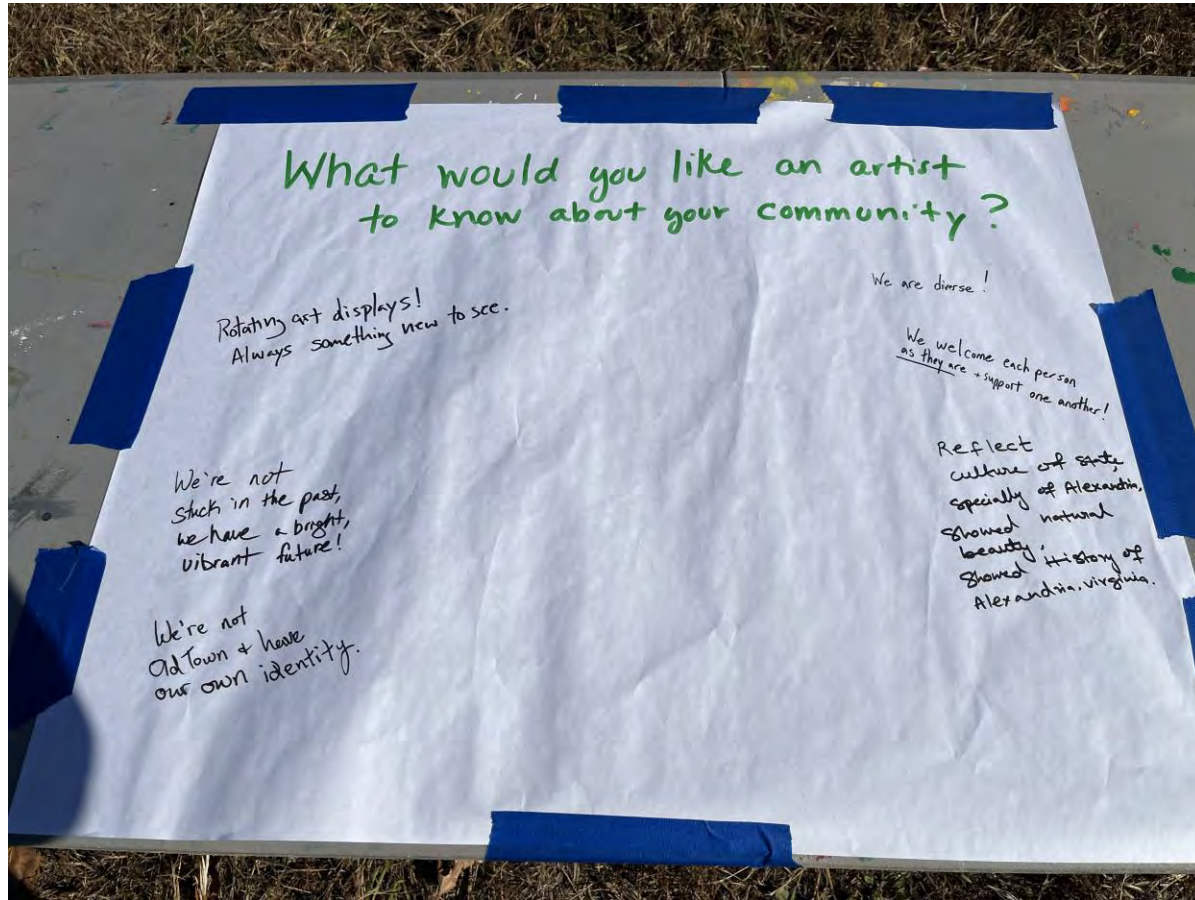 What would you like an artist
to know about your community?
Rotating art displays!
Always something new to see.
We're not
stuck in the past,
we have a bright,
vibrant future!
We're not
Old Town + have
our own identity.
We are diverse!
We welcome each person
as they are + support one another!
Reflect
culture of state,
specially of Alexandria,
showed natural
beauty,
showed History of
Alexandria, virginia.